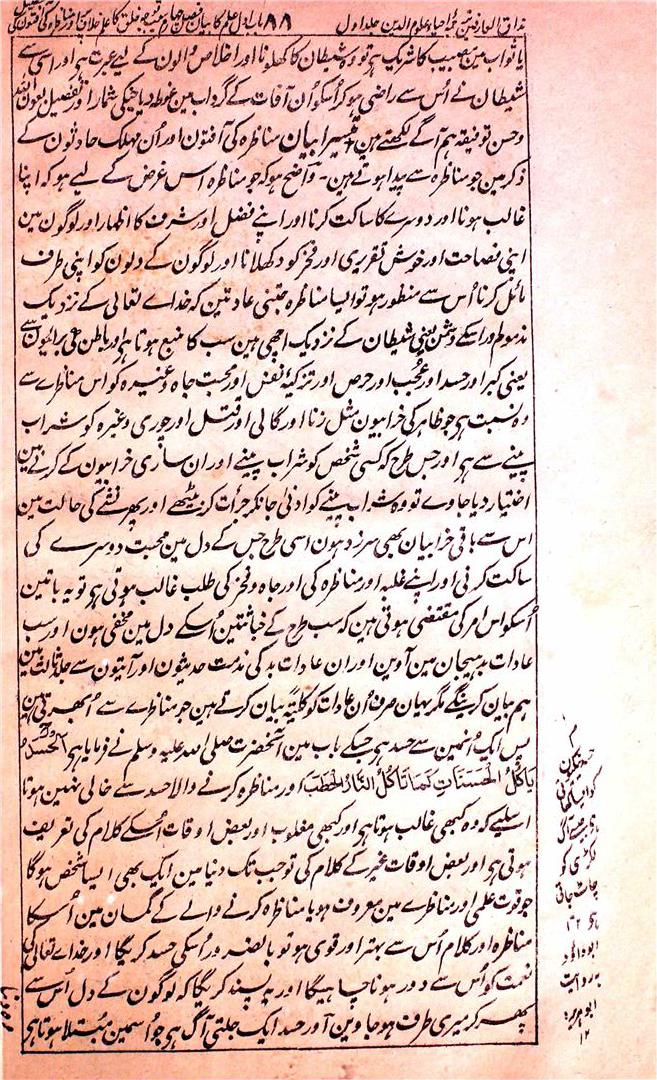 مذاق العارفین ترجمہ احیاء علوم الدین جلد اول ۸۸ باب اول علم کا بیان فصل چہارم
یا ثواب مین مصیب کا شریک ہے تو وہ شیطان کا کھلونا اور اخلاص والون کے لیے عبرت ہے اور اسی سے
شیطان نے اُس سے راضی ہوکر اُسکو اُن آفات کے گرداب مین غوطہ دیا جنکی شمار اور تفصیل
وحسن توفیقہ ہم آگے لکھتے ہین تیسرا بیان مناظرہ کی آفتون اور اُن مہلک حادثون کے
ذکر مین جو مناظرہ سے پیدا ہوتے ہین۔ واضح ہو کہ جو مناظرہ اس غرض کے لیے ہو کہ اپنا
غالب ہونا اور دوسرے کا ساکت کرنا اور اپنے فضل اور شرف کا اظہار اور لوگون مین
اپنی فصاحت اور خوش تقریری اور فخر کو دکھلانا اور لوگون کے دلون کو اپنی طرف
مائل کرنا اُس سے منظور ہو تو ایسا مناظرہ جتنی عادتین کہ خداے تعالی کے نزدیک
مذموم اور اسکے دشمن یعنی شیطان کے نزدیک اچھی ہین سب کا منبع ہوتا ہے اور باطن کی برائیون سے
یعنی کبر اور حسد اور عُجب اور حرص اور تزکیۂ نفس اور محبت جاہ وغیرہ کو اس مناظرے سے
وہ نسبت ہے جو ظاہر کی خرابیون مثل زنا اور گالی اور قتل اور چوری وغیرہ کو شراب
پینے سے ہے اور جس طرح کہ کسی شخص کو شراب پینے اور ان ساری خرابیون کے کرنے مین
اختیار دیا جاوے تو وہ شراب پینے کو ادنی جانکر جرأت کر بیٹھے اور پھر نشے کی حالت مین
اس سے باقی خرابیان بھی سرزد ہون اسی طرح جس کے دل مین محبت دوسرے کی
ساکت کرنی اور اپنے غلبہ اور مناظرہ کی اور جاہ و فخر کی طلب غالب ہوتی ہے تو یہ باتین
اُسکو اس امر کی مقتضی ہوتی ہین کہ سب طرح کے خباثتین اُسکے دل مین مخفی ہون اور سب
عادات بد ہیجان مین آوین اور ان عادات بد کی مذمت حدیثون اور آیتون سے جلد ثالث مین
ہم بیان کرینگے مگر یہان صرف اُن عادات کو کلیۃً بیان کرتے ہین جو مناظرے سے اُبھرتی ہین
پس ایک اُنمین سے حسد ہے جسکے باب مین آنحضرت صلی اللہ علیہ وسلم نے فرمایا ہے اَلْحَسَدُ
یَاکُلُ الْحَسَنَاتِ کَمَا تَاکُلُ النَّارُ الْحَطَبَ اور مناظرہ کرنے والا حسد سے خالی نہین ہوتا
اسلیے کہ وہ کبھی غالب ہوتا ہے اور کبھی مغلوب اور بعض اوقات اُسکے کلام کی تعریف
ہوتی ہے اور بعض اوقات غیر کے کلام کی تو جب تک دنیا مین ایک بھی ایسا شخص ہوگا
جو قوت علمی اور مناظرے مین معروف ہو یا مناظرہ کرنے والے کے گمان مین اُسکا
مناظرہ اور کلام اُس سے بہتر اور قوی ہو تو بالضرور اُسکی حسد کریگا اور خداے تعالی کی
نعمت کو اُس سے دور ہونا چاہیگا اور یہ پسند کریگا کہ لوگون کے دل اُس سے
پھر کر میری طرف ہوجاوین اور حسد ایک جلتی آگ ہے جو اسمین مبتلا ہوتا ہے
حسد نیکیون
کو ایسا کھاتی
ہے جیسے آگ
لکڑی کو
چاٹ جاتی
ہے ۱۲
ابوداؤد
بروایت
ابوہریرہ
۱۲